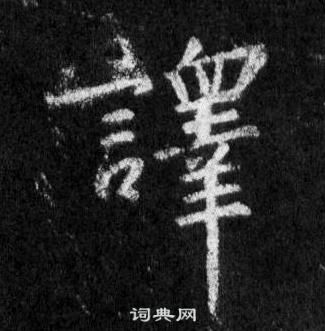 譯
词典网